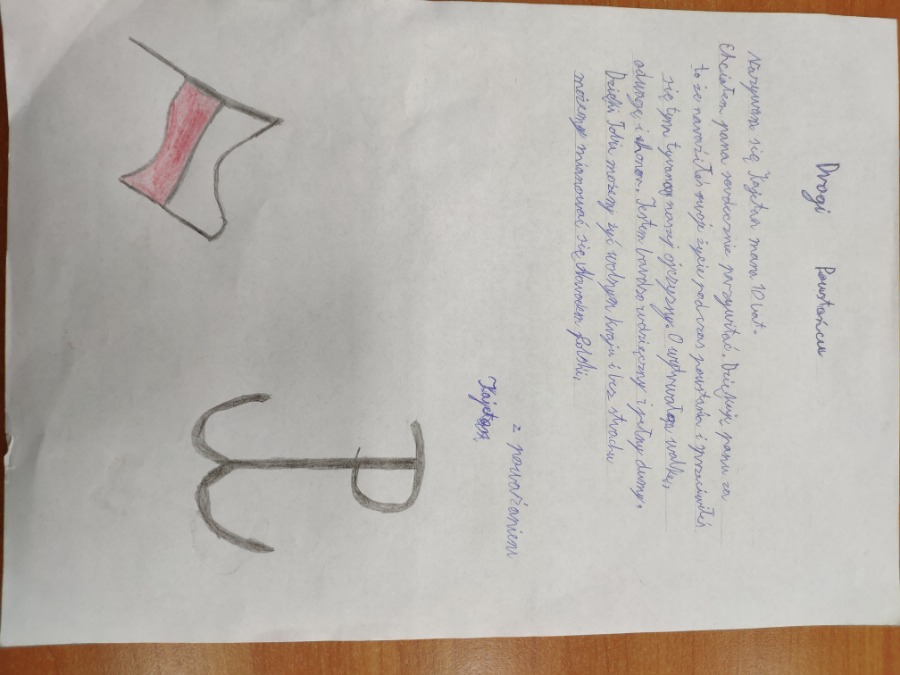 Drogi Powstańcu
Nazywam się Kajetan mam 10 lat.
Chciałem pana serdecznie przywitać. Dziękuje panu za
to że naraziłeś swoje życie podczas powstania i sprzeciwiłeś
się tym tyranom naszej ojczyzny. O wytrwałą walkę,
odwagę i honor. Jestem bardzo wdzięczny i pełny dumy.
Dzięki Tobie możemy żyć wolnym kraju i bez strachu
możemy mianować się Polski.
z poważaniem
Kajetan
P